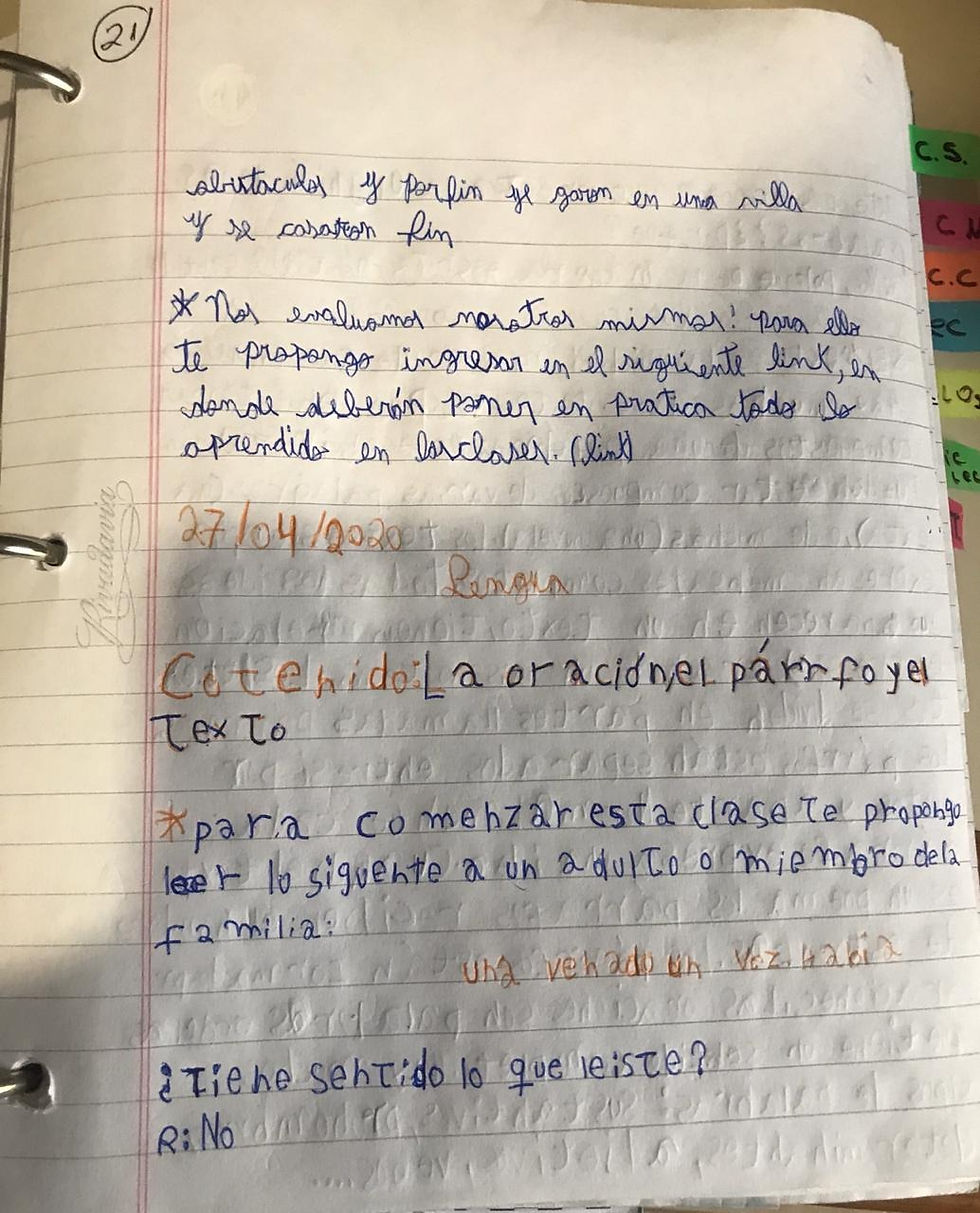 21
obstaculos y porfin ye garon en una villa
y se casaron fin
* Nos evaluamos nosotros mismos: para ello
te propongo ingresar en el siguiente link, en
donde deberán poner en pratica todo lo
aprendido en las clases. (link)
27/04/2020
Lengua
Cotenido: La oración, el párrfo y el
Texto
* para comenzar esta clase te propongo
leer lo siguente a un adulto o miembro de la
familia:
una venado un vez. había
¿Tiene sentido lo que leiste?
R: No
Rivadavia
C.S.
C N
C.C